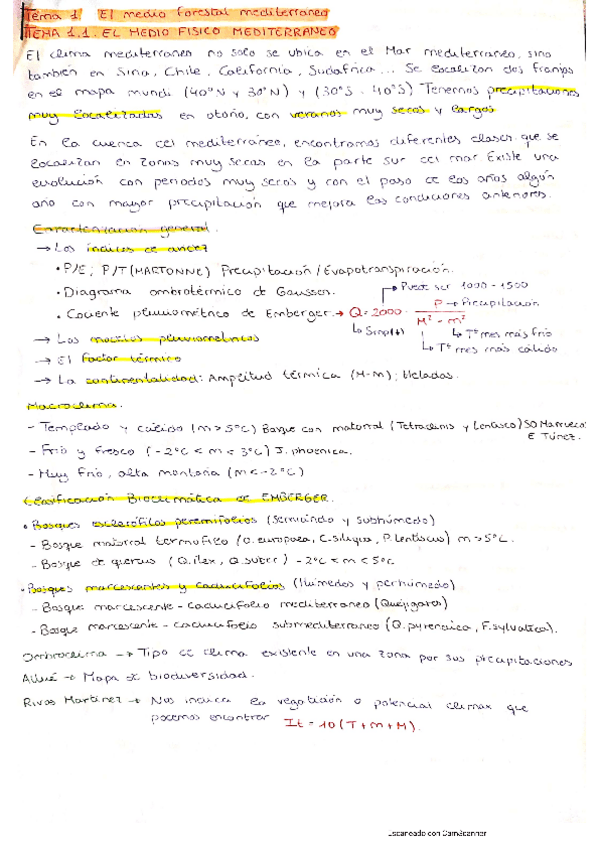 Tema 1. El medio forestal mediterraneo
TEMA 1.1. EL MEDIO FISICO MEDITERRANEO
El clima mediterraneo no solo se ubica en el Mar mediterraneo, sino
también en Siria, Chile, California, Sudafrica... Se localizan dos franjas
en el mapa mundi (40ºN y 30ºN) y (30ºS - 40ºS) Tenemos precipitaciones
muy localizadas en otoño, con veranos muy secos y largos.
En la cuenca del mediterráneo, encontramos diferentes clases que se
localizan en zonas muy secas en la parte sur del mar Existe una
evolución con periodos muy secos y con el paso de los años algún
año con mayor precipitación que mejora las condiciones anteriores.
Caracterización general.
→ Los índices de aridez
• P/E; P/T (MARTONNE) Precipitación/Evapotranspiración.
• Diagrama ombrotérmico de Gaussen.
→ Puede ser 1000 - 1500
• Cociente pluviométrico de Emberger. → Q = 2000 · P / M² - m²
P → Precipitación
↳ Simp(+)
↳ Tª mes más frío
↳ Tª mes más cálido
→ Los modelos pluviométricos
→ El factor térmico
→ La continentalidad: Amplitud térmica (M-m); Heladas.
Macroclima.
- Templado y cálido (m > 5ºC) Bosque con matorral (Tetraclinis y Lentisco) SO Marruecos
E Túnez.
- Frío y fresco (-2ºC < m < 3ºC) J. phoenica.
- Muy frío, alta montaña (m < -2ºC)
Clasificación Bioclimática de EMBERGER.
• Bosques esclerófilos perennifolios (Semiarido y subhúmedo)
- Bosque matorral termofilo (O. europaea, C. siliqua, P. lentiscus) m > 5ºC.
- Bosque de quercus (Q. ilex, Q. suber) -2ºC < m < 5ºC
• Bosques marcescentes y caducifolios (Húmedos y perhúmedo).
- Bosque marcescente - caducifolio mediterraneo (Quejigares)
- Bosque marcescente - caducifolio submediterraneo (Q. pyrenaica, F. sylvatica).
Ombroclima → Tipo de clima existente en una zona por sus precipitaciones
Allué → Mapa de biodiversidad.
Rivas Martinez → Nos indica la vegetación o potencial climax que
podemos encontrar It = 10 (T + m + M).
Escaneado con CamScanner